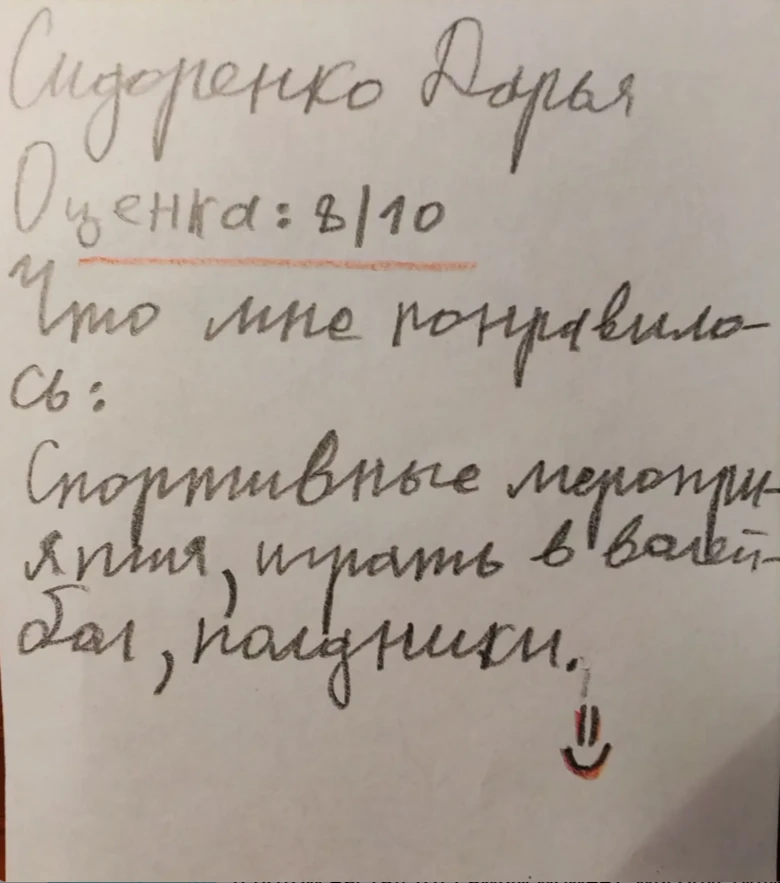 Сидоренко Дарья
Оценка: 8/10
Что мне понравило-
сь:
Спортивные меропри-
ятия, играть в волей-
бол, полдники.